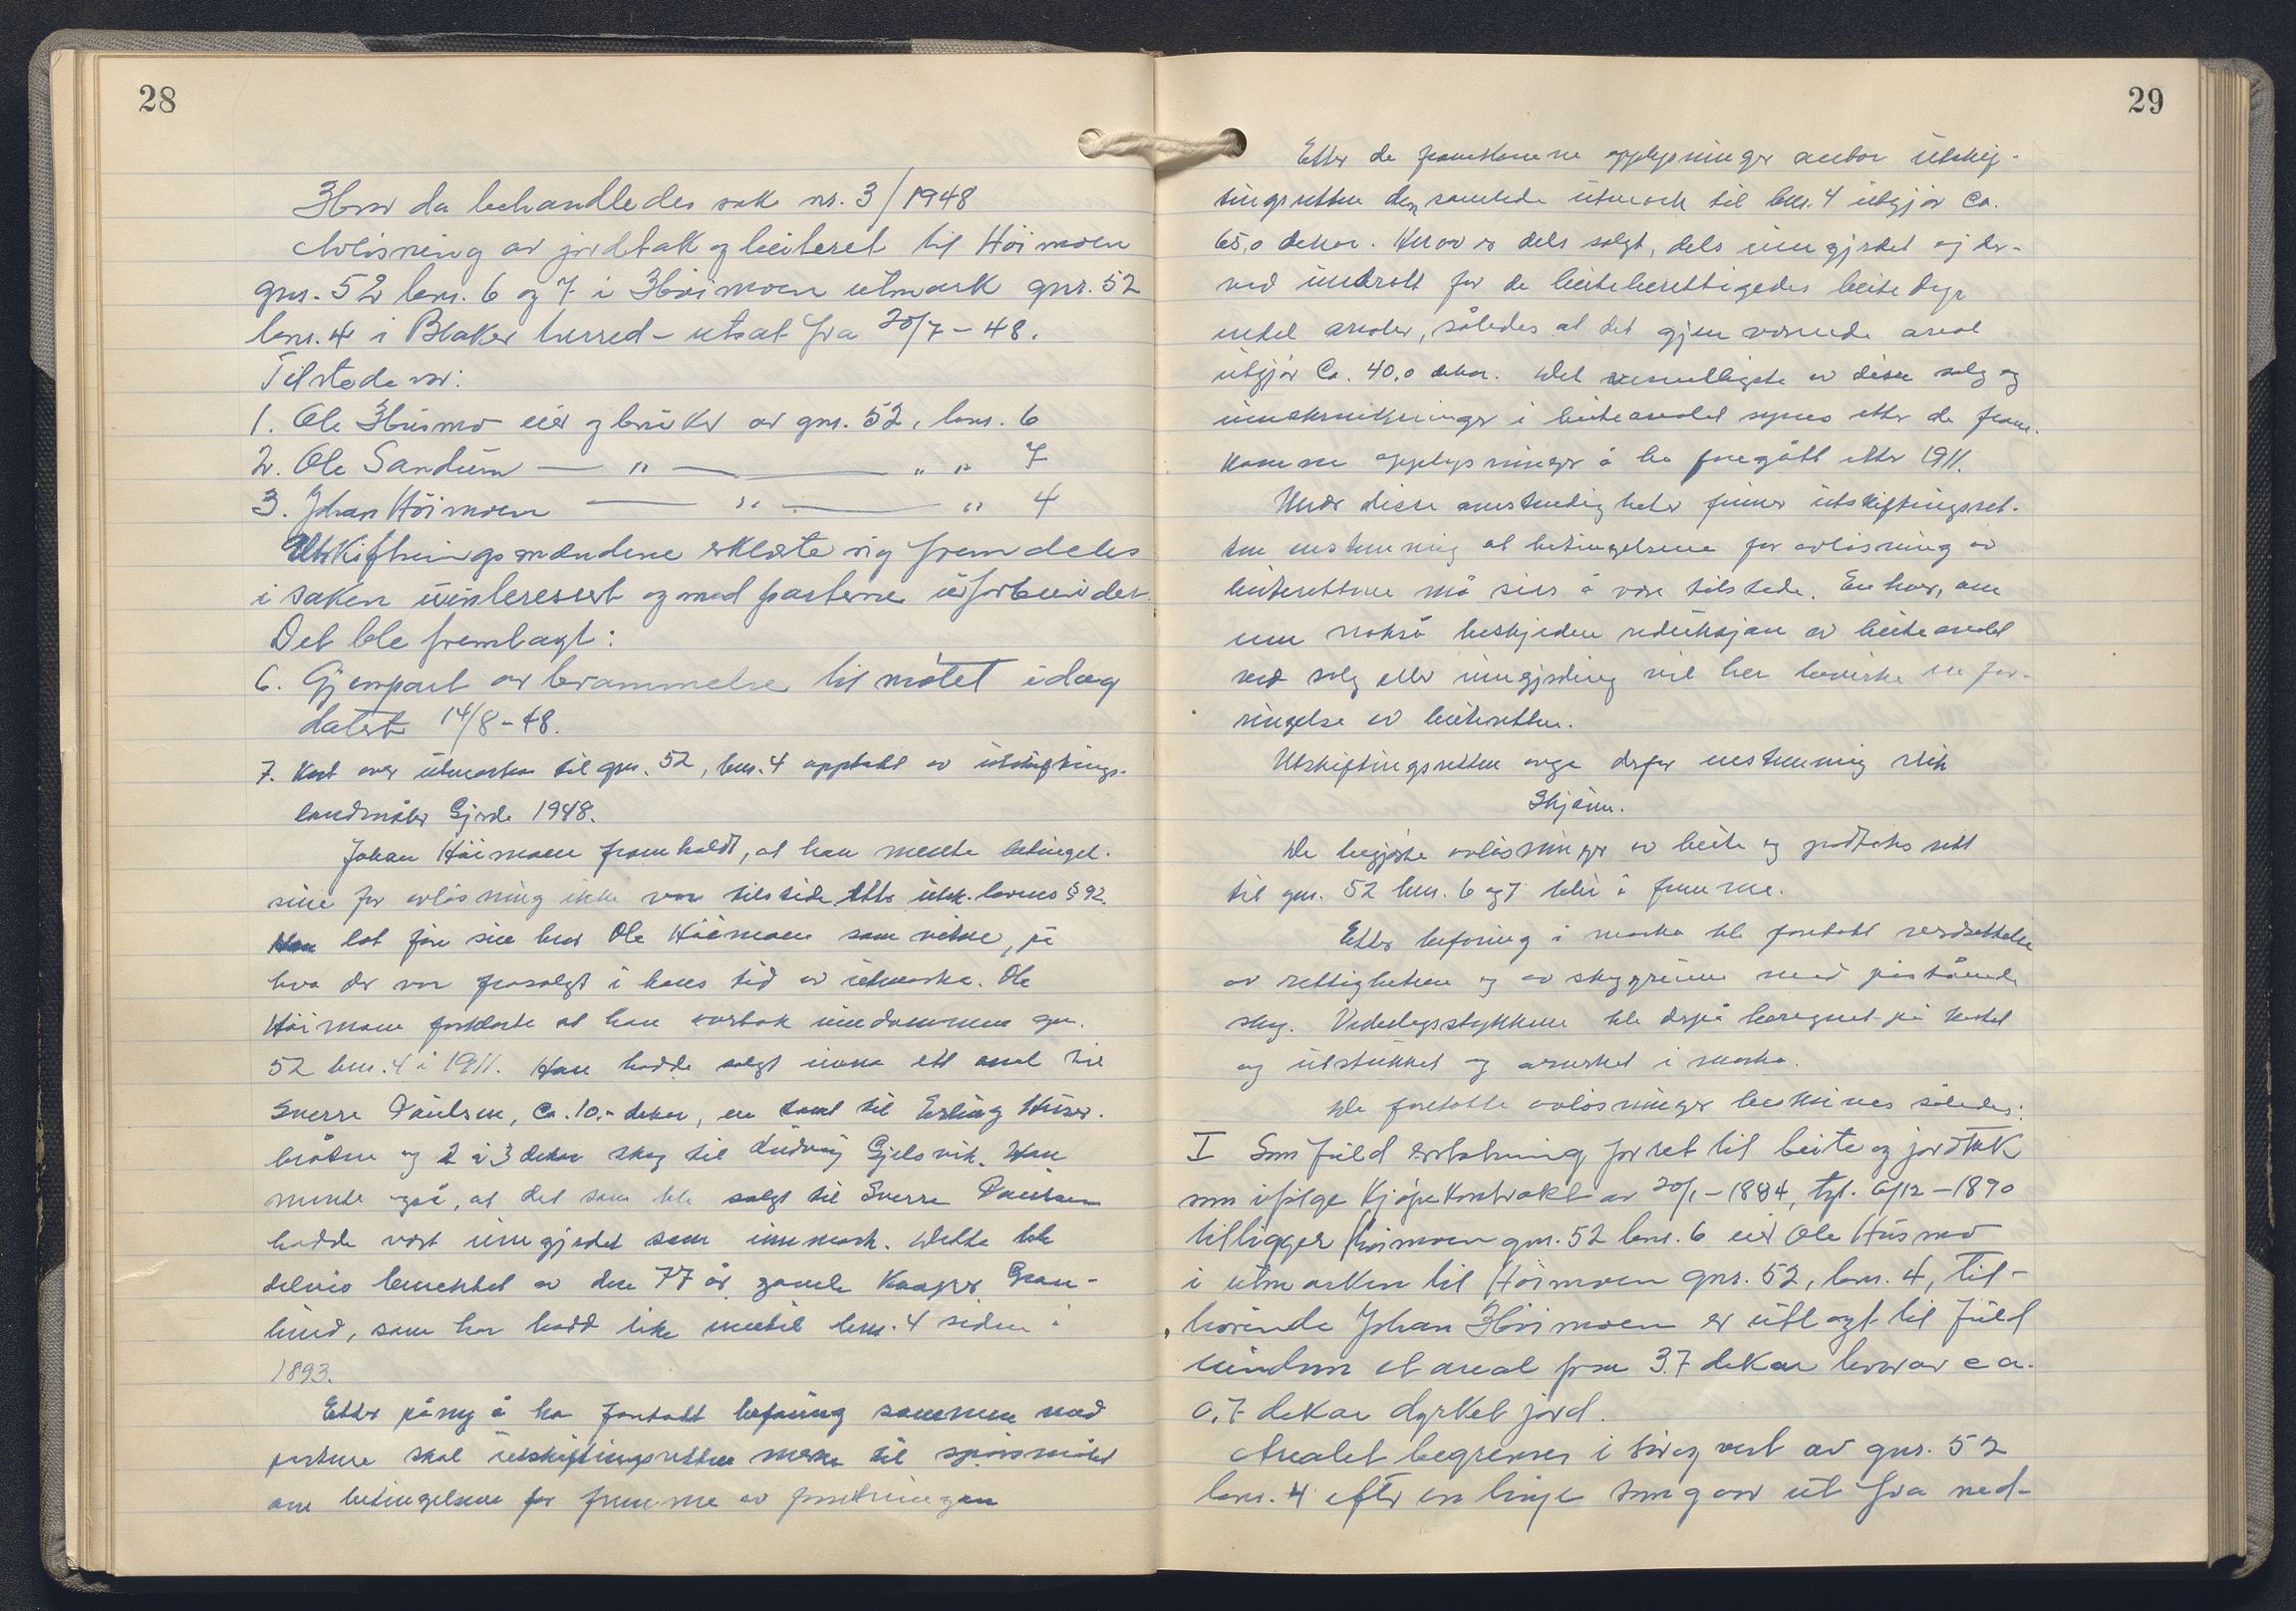 28
Hvor da behandledes sak nr. 3/1948
Avløsning av jordtak og beiteret til Höimoen
gnr. 52 bnr. 6 og 7 i Höimoen utmark gnr. 52
bnr. 4 i Blaker herred - utsat fra 20/7 - 48.
Tilstede var:
1. Ole Húsmo eier og brúker av gnr. 52, bnr. 6
2. Ole Sandúm — " — — " " 7
3. Johan Höimoen — " — — " 4
Utskiftningsmændene erklærte sig fremdeles
i saken úinteressert og med parterne úforbundet.
Det ble fremlagt:
6. Gjenpart av berammelse til møtet idag
datert 14/8-48.
7. Kart over útmarka til gnr. 52, bnr. 4 opptatt av útskiftings-
landmåler Gjerde 1948.
Johan Höimoen framholdt, at han mente betingel-
sene for avløsning ikke var tilstede etter útsk. lovens § 92.
Han lot føre sin bror Ole Höimoen som vitne, på
hva der var frasolgt i hans tid av útmarka. Ole
Höimoen forklarte at han overtok eiendommen gnr.
52 bnr. 4 i 1911. Han hadde solgt únna ett areal til
Sverre Paúlsen, ca. 10,- dekar, en tomt til Erling Húser-
bråten og 2 à 3 dekar skog til Lúdvig Gjelsvik. Han
mente også, at det som ble solgt til Sverre Paúlsen
hadde vært inngjerdet som innmark. Dette ble
delvis benektet av den 77 år gamle Kasper Gran-
lúnd, som har bodd like inntil bnr. 4 siden i
1893.
Etter påny å ha foretatt befaring sammen med
partene skal útskiftingsretten merke til spørsmålet
om betingelsene for fremme av forretningen
29
Etter de framkomne opplysninger antar útskif-
tingsretten den samlede útmark til bnr. 4 útgjør ca.
65,0 dekar. Herav er dels solgt, dels inngjerdet og der-
ved únndratt for de beiteberettigedes beitedyr
endel arealer, således at det gjenværende areal
útgjør ca. 40,0 dekar. Det vesentligste av disse salg og
innskrenkninger i beitearealet synes etter de fram-
komne opplysninger å ha foregått etter 1911.
Under disse omstendigheter finner útskiftingsret-
ten enstemmig at betingelsene for avløsning av
beiterettene må sies å være tilstede. Enhver, om
enn nokså beskjeden redúksjon av beitearealet
ved salg eller inngjerding vil her bevirke en for-
ringelse av beiteretten.
Utskiftingsretten avga derfor enstemmig slik
Skjønn.
De begjærte avløsninger av beite og jordtaksrett
til gnr. 52 bnr. 6 og 7 blir å fremme.
Etter befaring i marka ble foretatt verdsettelse
av rettighetene og av skoggrúnn med påstående
skog. Vederlagsstykkene ble derpå beregnet på kartet
og útstúkket og avmerket i marka.
De foretatte avløsninger beskrives således:
I Som fúld erstatning for ret til beite og jordtak
som ifølge kjøpekontrakt av 20/1 - 1884, tgl. 6/12 - 1890
tilligger Höimoen gnr. 52 bnr. 6 eier Ole Húsmo
i utmarken til Höimoen gnr. 52, bnr. 4, til-
hørende Johan Höimoen er útlagt til fúld
eiendom et areal fra 3.7 dekar hvorav ca.
0,7 dekar dyrket jord.
Arealet begrenses i syd og vest av gnr. 52
bnr. 4 efter en linje som gaar út fra ned-